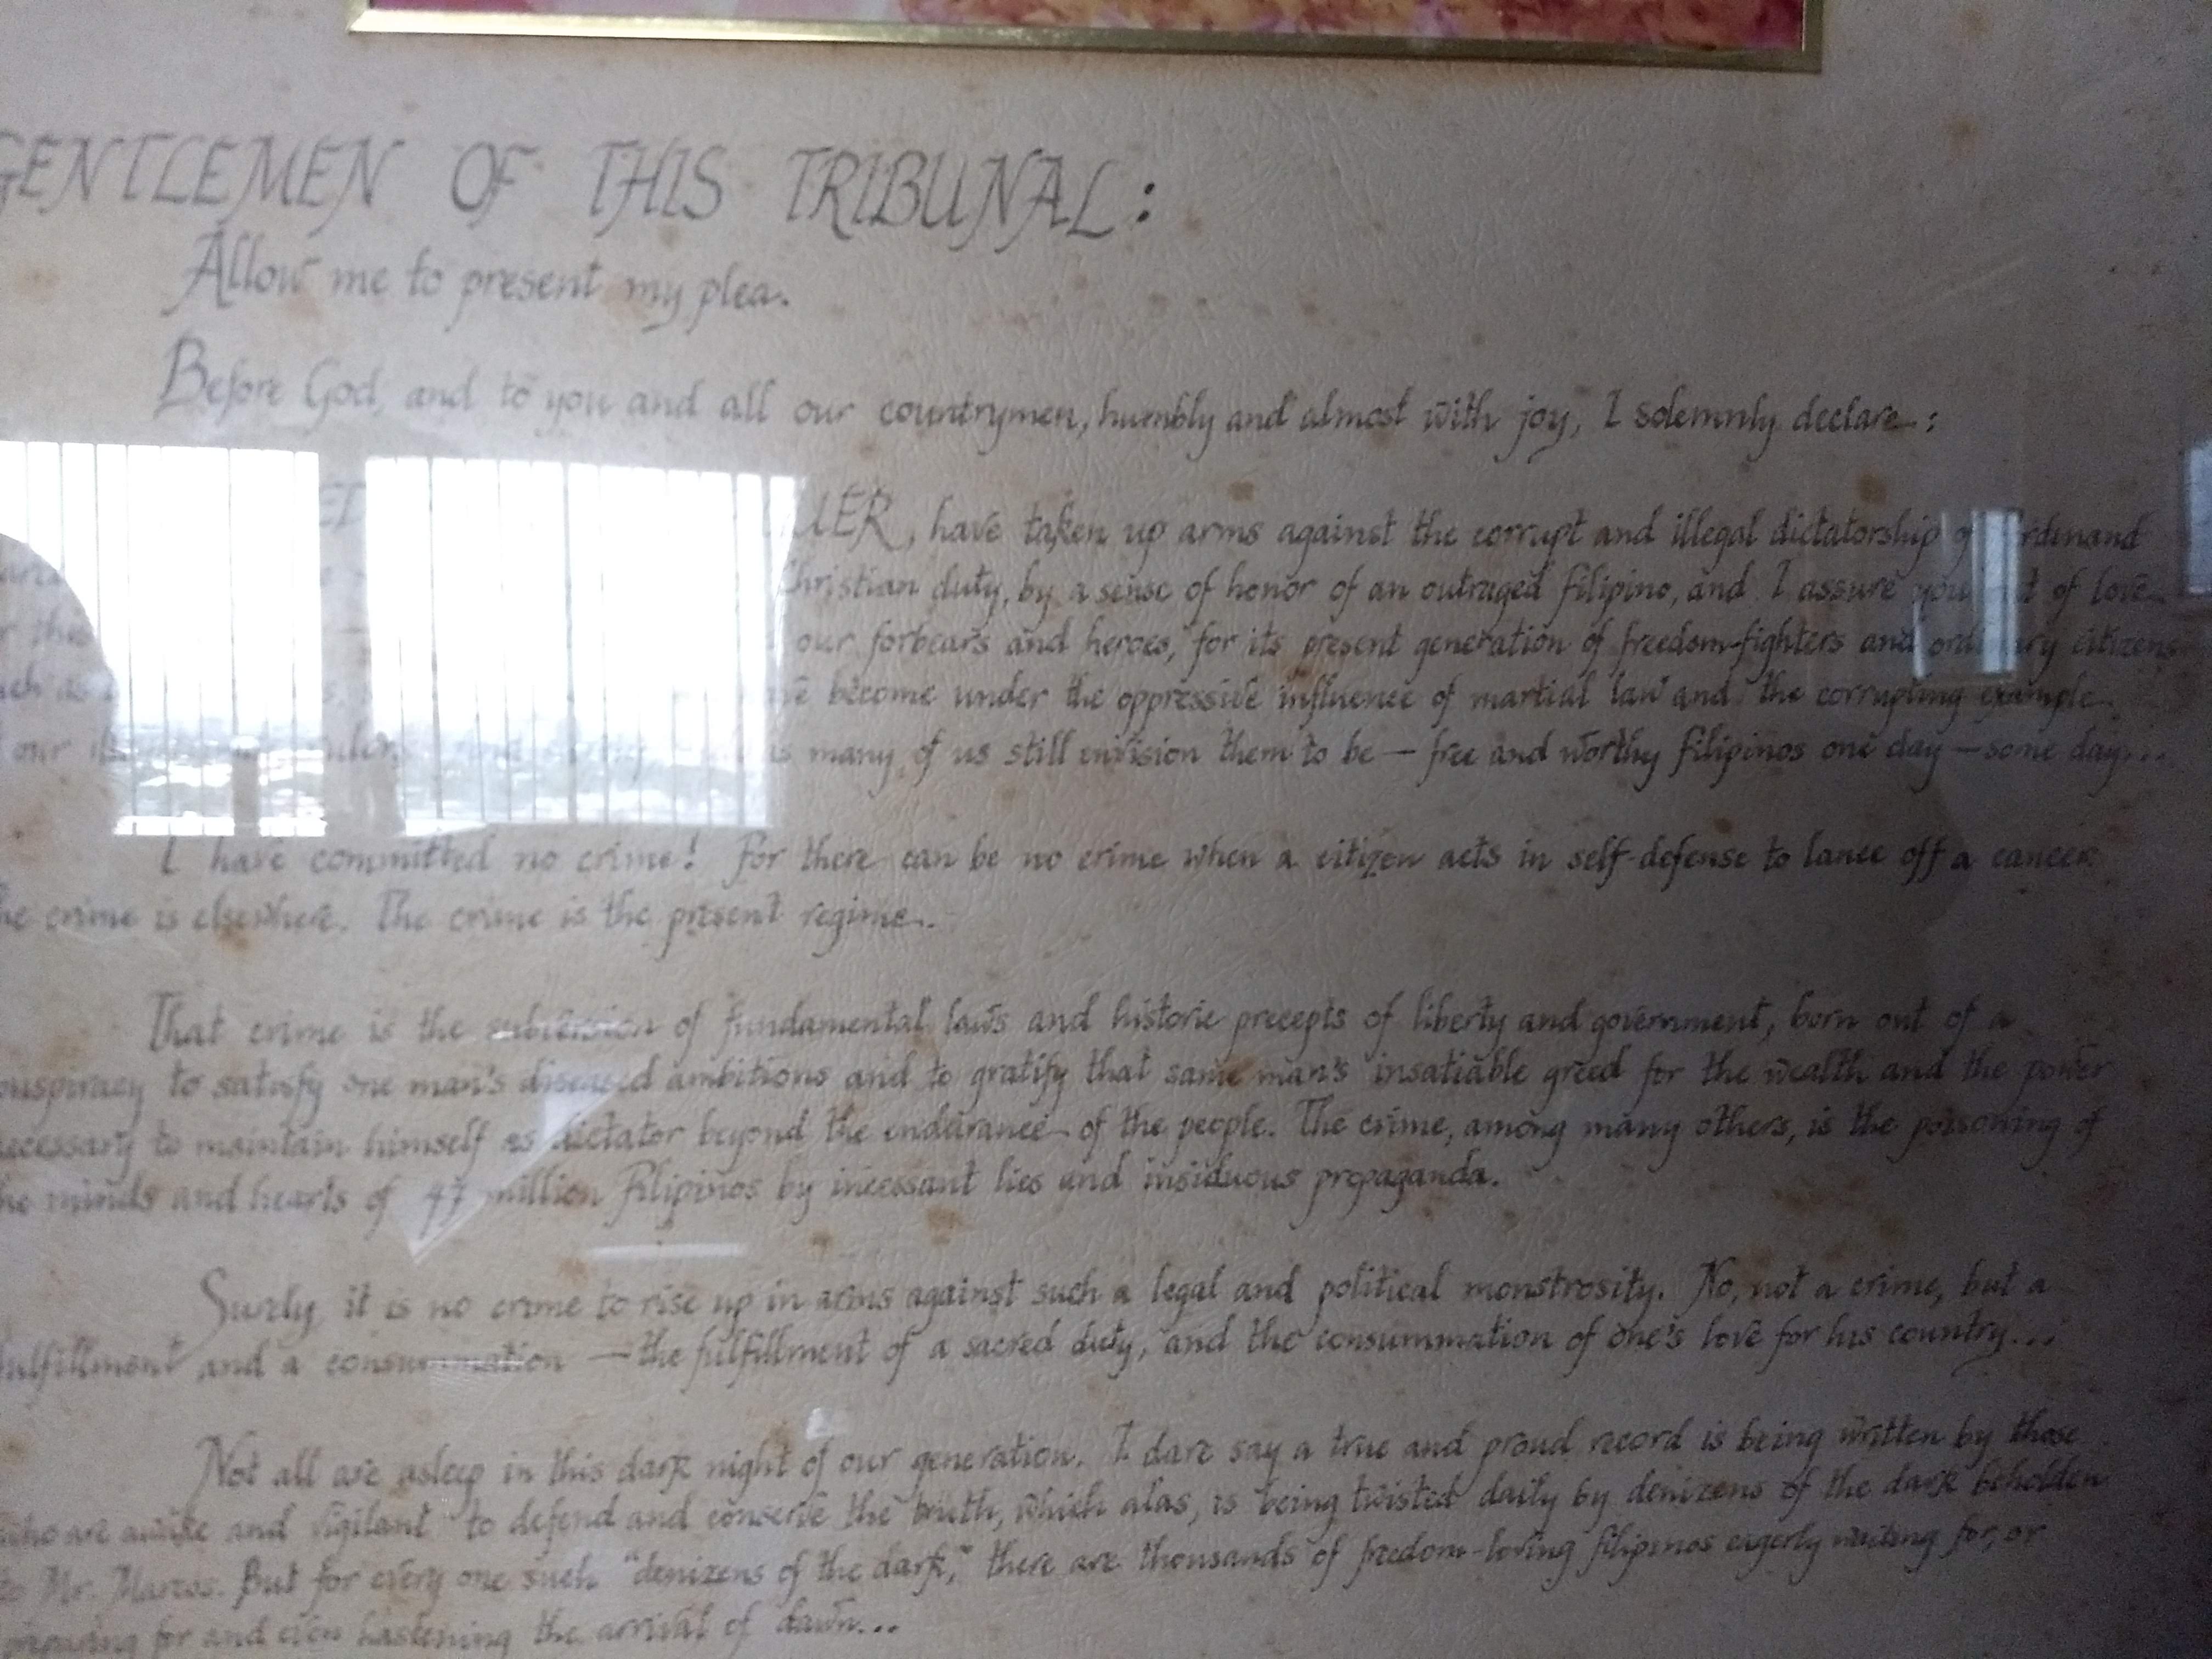 GENTLEMEN OF THIS TRIBUNAL:
Allow me to present my plea.
Before God, and to you and all our countrymen, humbly and almost with joy, I solemnly declare:
have taken up arms against the corrupt and illegal dictatorship
Christian duty, by a sense of honor of an outraged Filipino, and I assure you of love
our forbears and heroes, for its present generation of freedom-fighters and ordinary citizens
become under the oppressive influence of martial law and the corrupting example
our many of us still envision them to be — free and worthy Filipinos one day — some day...
I have committed no crime! For there can be no crime when a citizen acts in self-defense to lance off a cancer.
crime is elsewhere. The crime is the present regime.
That crime is the subversion of fundamental laws and historic precepts of liberty and government, born out of a
to satisfy one man's diseased ambitions and to gratify that same man's insatiable greed for the wealth and the power
necessary to maintain himself as dictator beyond the endurance of the people. The crime, among many others, is the poisoning of
minds and hearts of 47 million Filipinos by incessant lies and insiduous propaganda.
Surely it is no crime to rise up in arms against such a legal and political monstrosity. No, not a crime, but a
fulfillment and a consummation — the fulfillment of a sacred duty, and the consummation of one's love for his country...
Not all are asleep in this dark night of our generation. I dare say a true and proud record is being written by those
who are awake and vigilant to defend and conserve the truth, which alas, is being twisted daily by denizens of the dark beholden
to Mr. Marcos. But for every one such "denizens of the dark," there are thousands of freedom-loving Filipinos eagerly waiting for, or
preparing for and even hastening the arrival of dawn...